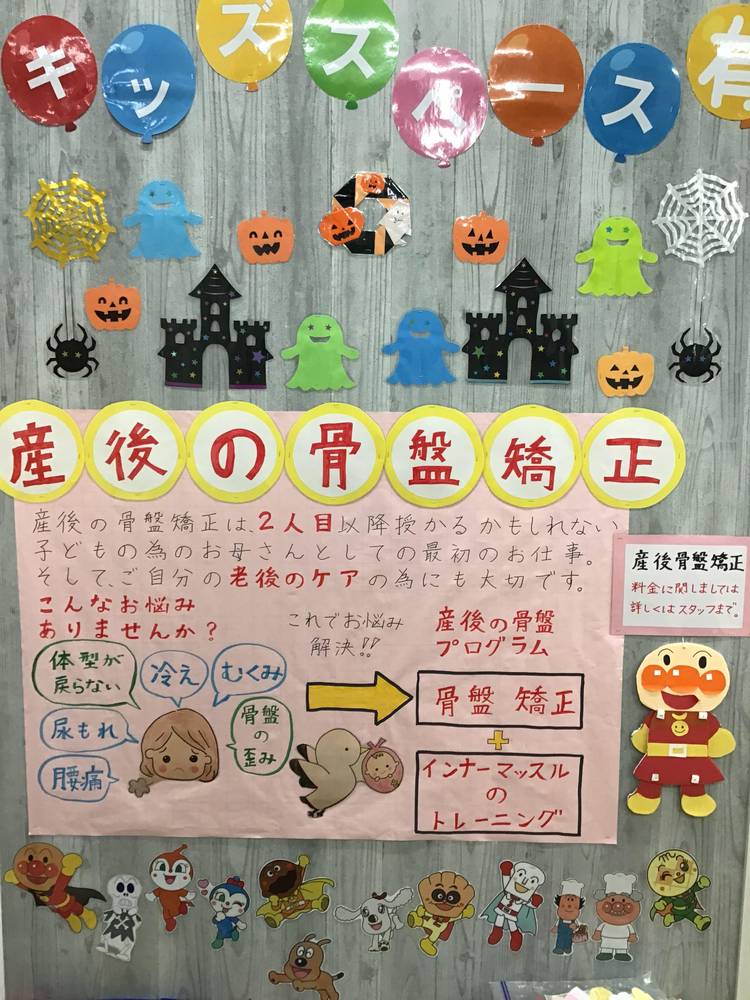 キッズスペース有
産後の骨盤矯正
産後の骨盤矯正は、2人目以降授かるかもしれない
子どもの為のお母さんとしての最初のお仕事。
そして、ご自分の老後のケアの為にも大切です。
こんなお悩み
ありませんか?
体型が
戻らない
冷え
むくみ
尿もれ
骨盤
の
歪み
腰痛
これでお悩み
解決!!
産後の骨盤
プログラム
骨盤 矯正
+
インナーマッスル
の
トレーニング
産後骨盤矯正
料金に関しましては
詳しくはスタッフまで。